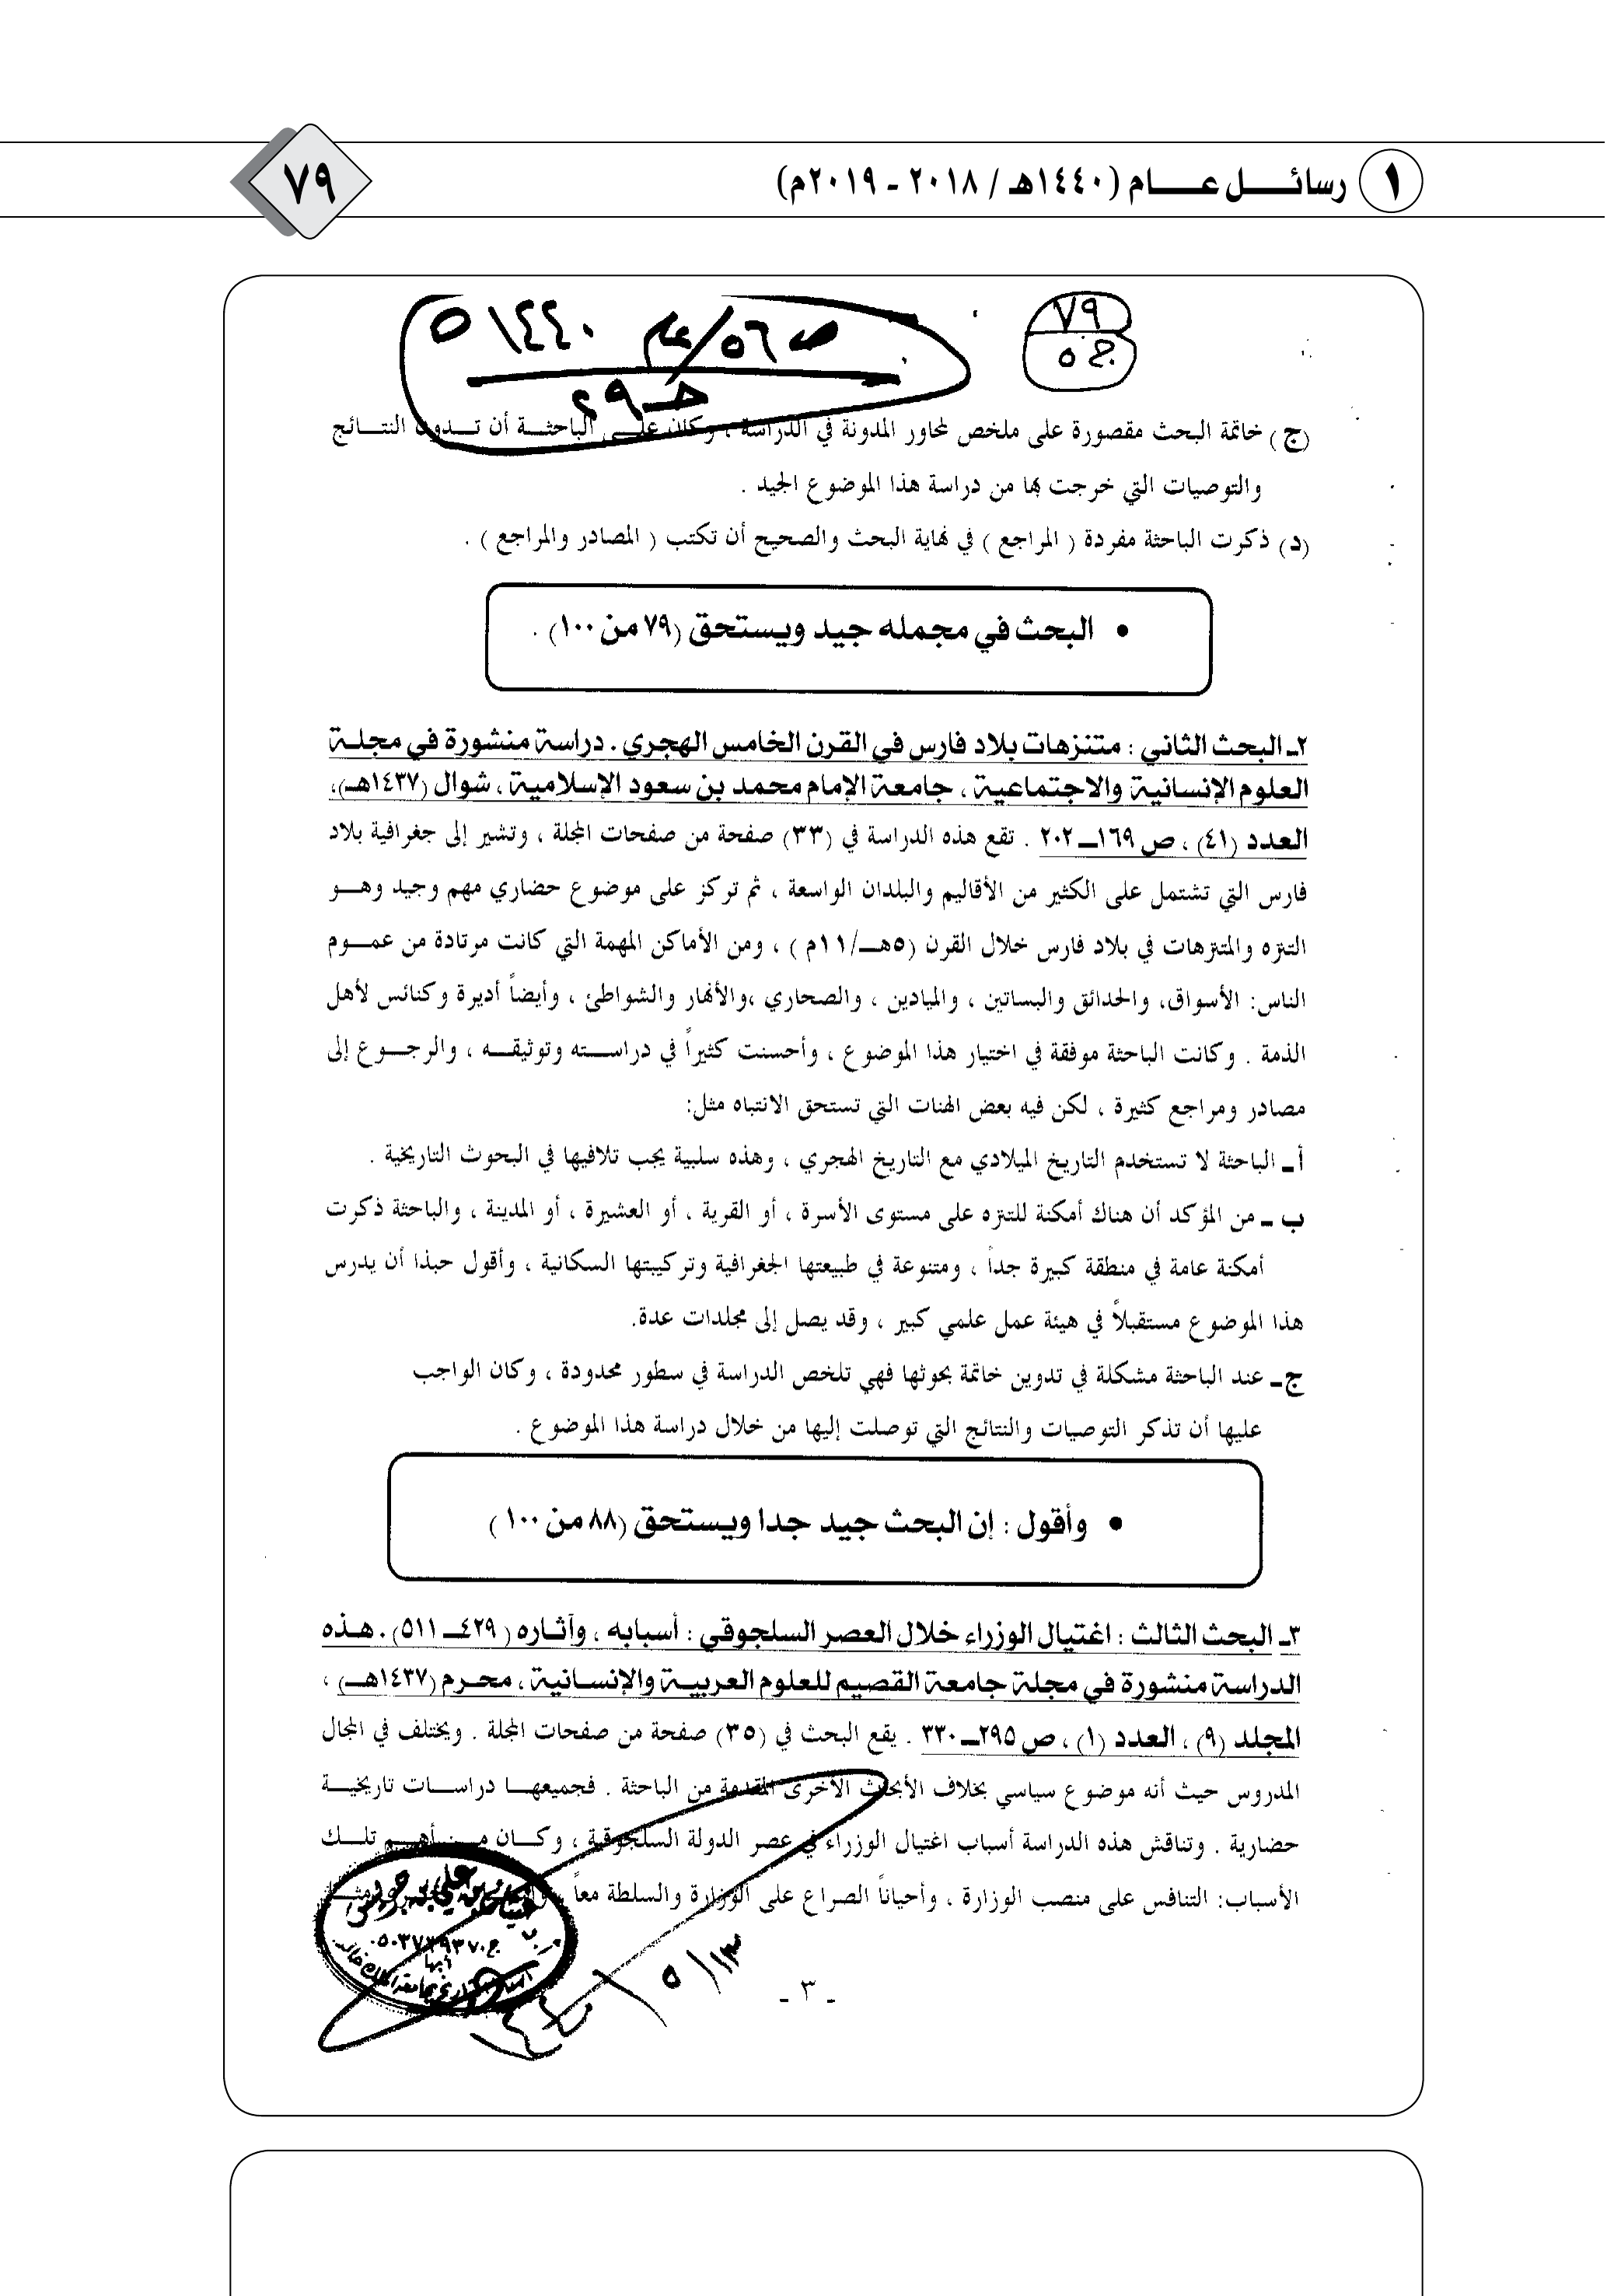 ١ رسائل عام (١٤٤٠هـ / ٢٠١٨ - ٢٠١٩م)
٧٩
٧٩
ج ٥
ص ٥٦/عام ١٤٤٠ه
حـ ٢٩
(ج) خاتمة البحث مقصورة على ملخص لمحاور المدونة في الدراسة ، وكان على الباحثة أن تدون النتائج
والتوصيات التي خرجت بها من دراسة هذا الموضوع الجيد .
(د) ذكرت الباحثة مفردة ( المراجع ) في نهاية البحث والصحيح أن تكتب ( المصادر والمراجع ) .
• البحث في مجمله جيد ويستحق (٧٩ من ١٠٠) .
٢ـ البحث الثاني : متنزهات بلاد فارس في القرن الخامس الهجري . دراسة منشورة في مجلة
العلوم الإنسانية والاجتماعية ، جامعة الإمام محمد بن سعود الإسلامية ، شوال (١٤٣٧هـ)،
العدد (٤١) ، ص ١٦٩ـ ٢٠٢ . تقع هذه الدراسة في (٣٣) صفحة من صفحات المجلة ، وتشير إلى جغرافية بلاد
فارس التي تشتمل على الكثير من الأقاليم والبلدان الواسعة ، ثم تركز على موضوع حضاري مهم وجيد وهو
التنزه والمتنزهات في بلاد فارس خلال القرن (٥هـ/١١م ) ، ومن الأماكن المهمة التي كانت مرتادة من عموم
الناس: الأسواق، والحدائق والبساتين ، والميادين ، والصحاري ،والأنهار والشواطئ ، وأيضاً أديرة وكنائس لأهل
الذمة . وكانت الباحثة موفقة في اختيار هذا الموضوع ، وأحسنت كثيراً في دراسته وتوثيقه ، والرجوع إلى
مصادر ومراجع كثيرة ، لكن فيه بعض الهنات التي تستحق الانتباه مثل:
أ ـ الباحثة لا تستخدم التاريخ الميلادي مع التاريخ الهجري ، وهذه سلبية يجب تلافيها في البحوث التاريخية .
ب ـ من المؤكد أن هناك أمكنة للتنزه على مستوى الأسرة ، أو القرية ، أو العشيرة ، أو المدينة ، والباحثة ذكرت
أمكنة عامة في منطقة كبيرة جداً ، ومتنوعة في طبيعتها الجغرافية وتركيبتها السكانية ، وأقول حبذا أن يدرس
هذا الموضوع مستقبلاً في هيئة عمل علمي كبير ، وقد يصل إلى مجلدات عدة.
ج ـ عند الباحثة مشكلة في تدوين خاتمة بحوثها فهي تلخص الدراسة في سطور محدودة ، وكان الواجب
عليها أن تذكر التوصيات والنتائج التي توصلت إليها من خلال دراسة هذا الموضوع .
• وأقول : إن البحث جيد جدا ويستحق (٨٨ من ١٠٠ )
٣ـ البحث الثالث : اغتيال الوزراء خلال العصر السلجوقي : أسبابه ، وآثاره ( ٤٢٩ـ ٥١١) . هذه
الدراسة منشورة في مجلة جامعة القصيم للعلوم العربية والإنسانية ، محرم (١٤٣٧هـ) ،
المجلد (٩) ، العدد (١) ، ص ٢٩٥ـ ٣٣٠ . يقع البحث في (٣٥) صفحة من صفحات المجلة . ويختلف في المجال
المدروس حيث أنه موضوع سياسي بخلاف الأبحاث الأخرى المقدمة من الباحثة . فجميعها دراسات تاريخية
حضارية . وتناقش هذه الدراسة أسباب اغتيال الوزراء في عصر الدولة السلجوقية ، وكان من أهم تلك
الأسباب: التنافس على منصب الوزارة ، وأحياناً الصراع على الوزارة والسلطة معاً
أبها
١٣ / ٥ /
ـ ٣ ـ